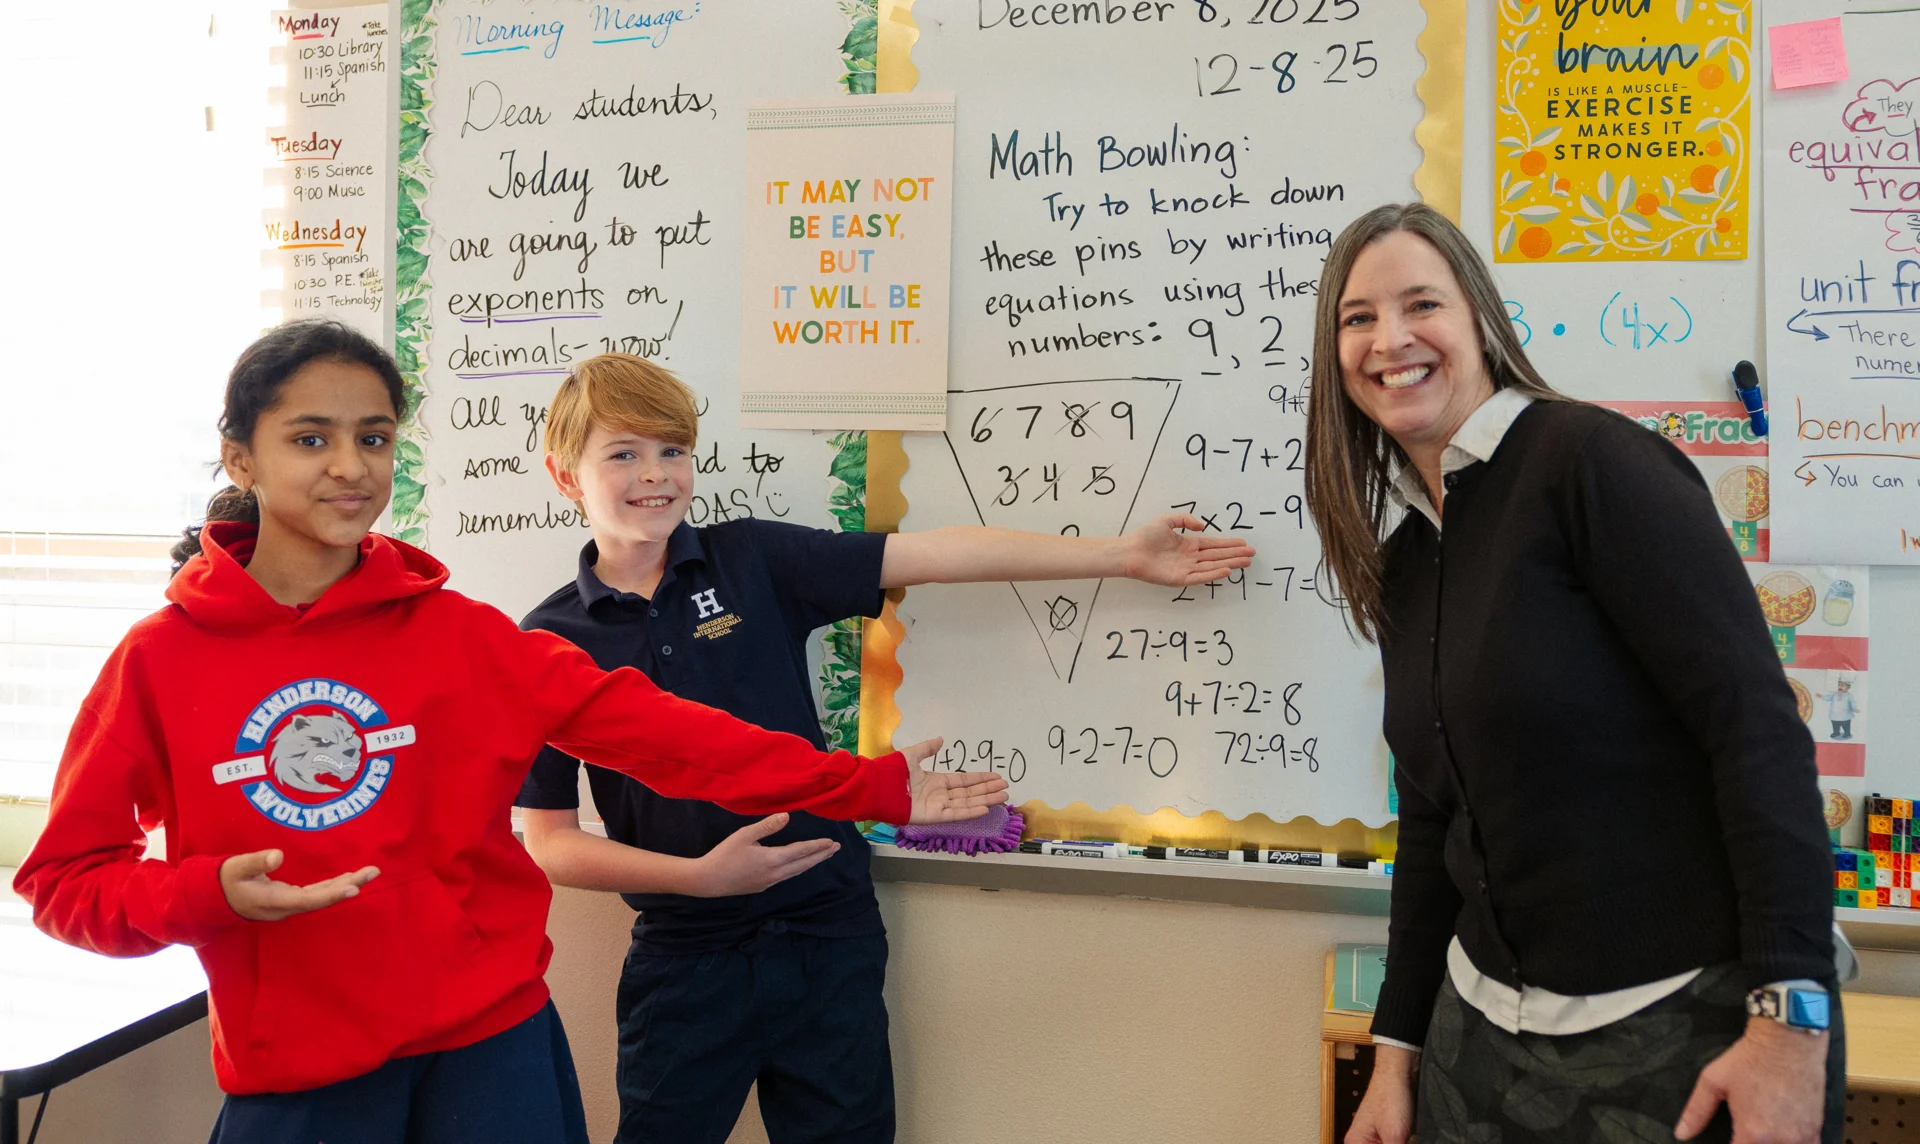 Monday
*Take
10:30 Library
11:15 Spanish
Lunch
Tuesday
8:15 Science
9:00 Music
Wednesday
8:15 Spanish
10:30 P.E. *Take
11:15 Technology
Morning Message:
Dear students,
Today we
are going to put
exponents on
decimals- wow!
All
some
remember
DAS
IT MAY NOT
BE EASY,
BUT
IT WILL BE
WORTH IT.
December 8, 2025
12-8-25
Math Bowling:
Try to knock down
these pins by writing
equations using
numbers: 9, 2,
6 7 8 9
3 4 5
0
9-7+2
7x2-9
2+9-7=
27÷9=3
9+7÷2=8
+2-9=0
9-2-7=0
72÷9=8
your
brain
IS LIKE A MUSCLE-
EXERCISE
MAKES IT
STRONGER.
3 • (4x)
They
unit
There
You can
4/8
4/6
HENDERSON
EST.
1932
WOLVERINES
H
HENDERSON
INTERNATIONAL
SCHOOL
EXPO
EXPO